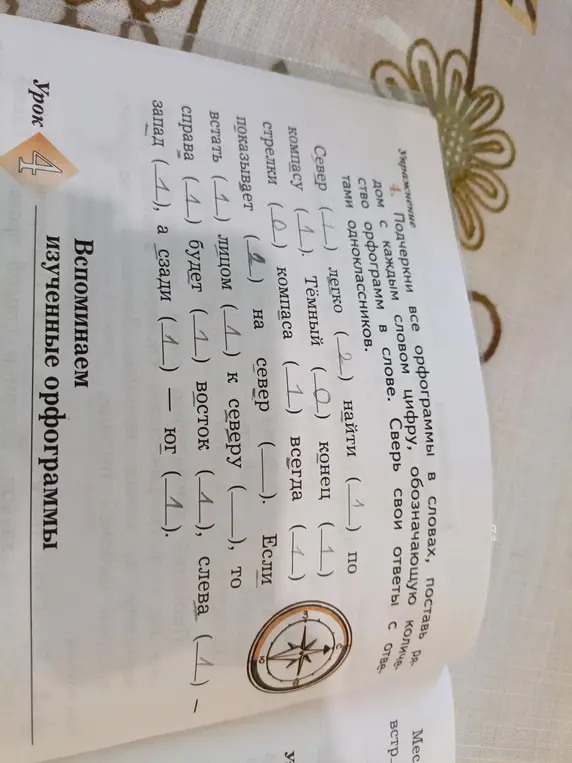 Упражнение
4. Подчеркни все орфограммы в словах, поставь ря-
дом с каждым словом цифру, обозначающую количе-
ство орфограмм в слове. Сверь свои ответы с отве-
тами одноклассников.
Север (1) легко (2) найти (1) по
компасу (1). Тёмный (0) конец (1)
стрелки (0) компаса (1) всегда (1)
показывает (2) на север (__). Если
встать (1) лицом (1) к северу (__), то
справа (1) будет (1) восток (1), слева (1) –
запад (1), а сзади (1) — юг (1).
Урок 4
Вспоминаем
изученные орфограммы
Мес
встр